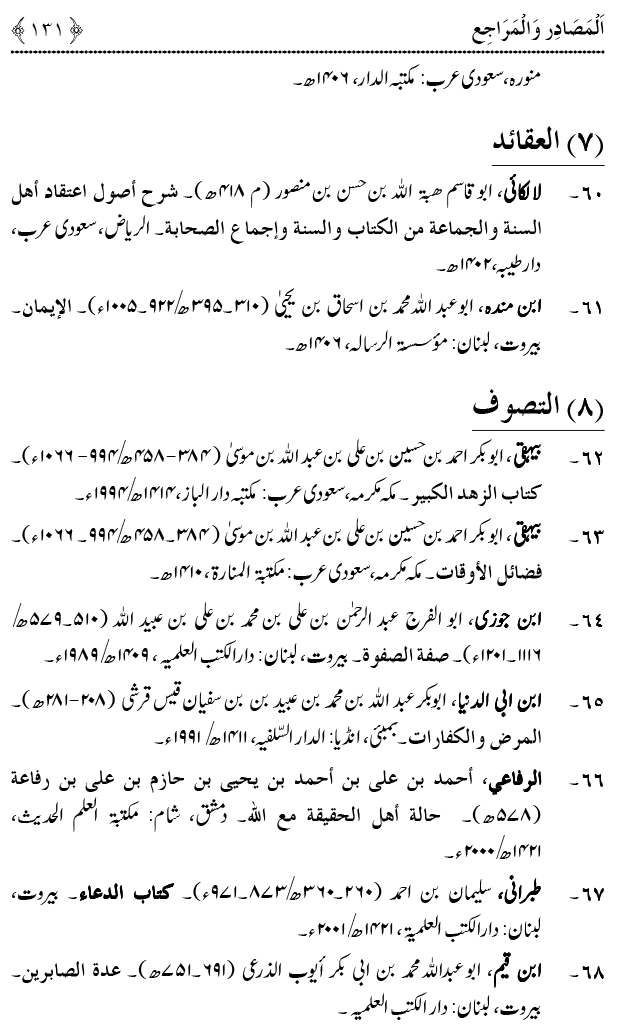 اَلْمَصَادِر وَالْمَرَاجِع ﴿ ۱۳۱ ﴾
منورہ، سعودی عرب: مکتبہ الدار، ۱۴۰۶ھ۔
(۷) العقائد
۶۰۔ لالکائی، ابو قاسم ھبۃ اللہ بن حسن بن منصور (م ۴۱۸ھ)۔ شرح أصول اعتقاد أهل
السنة والجماعة من الكتاب والسنة وإجماع الصحابة۔ الریاض، سعودی عرب،
دار طیبہ، ۱۴۰۲ھ۔
۶۱۔ ابن مندہ، ابو عبد اللہ محمد بن اسحاق بن یحییٰ (۳۱۰۔۳۹۵ھ/۹۲۲۔۱۰۰۵ء)۔ الإیمان۔
بیروت، لبنان: مؤسسۃ الرسالہ، ۱۴۰۶ھ۔
(۸) التصوف
۶۲۔ بیہقی، ابو بکر احمد بن حسین بن علی بن عبد اللہ بن موسیٰ (۳۸۴-۴۵۸ھ/۹۹۴-۱۰۶۶ء)۔
كتاب الزهد الكبير ۔ مکہ مکرمہ، سعودی عرب: مکتبہ دار الباز، ۱۴۱۴ھ/۱۹۹۴ء۔
۶۳۔ بیہقی، ابو بکر احمد بن حسین بن علی بن عبد اللہ بن موسیٰ (۳۸۴۔۴۵۸ھ/۹۹۴۔۱۰۶۶ء)۔
فضائل الأوقات۔ مکہ مکرمہ، سعودی عرب: مکتبۃ المنارۃ، ۱۴۱۰ھ۔
۶۴۔ ابن جوزی، ابو الفرج عبد الرحمٰن بن علی بن محمد بن علی بن عبید اللہ (۵۱۰۔۵۷۹ھ/
۱۱۱۶۔۱۲۰۱ء)۔ صفة الصفوة۔ بیروت، لبنان: دار الکتب العلمیہ، ۱۴۰۹ھ/۱۹۸۹ء۔
۶۵۔ ابن ابی الدنیا، ابوبکر عبد اللہ بن محمد بن عبید بن بن سفیان قیس قرشی (۲۰۸-۲۸۱ھ)۔
المرض والكفارات۔ بمبئی، انڈیا: الدار السّلفیہ، ۱۴۱۱ھ/ ۱۹۹۱ء۔
۶۶۔ الرفاعي، أحمد بن على بن أحمد بن يحيى بن حازم بن على بن رفاعة
(۵۷۸ھ)۔ حالة أهل الحقيقة مع الله۔ دمشق، شام: مکتبۃ العلم الحدیث،
۱۴۲۱ھ/۲۰۰۰ء۔
۶۷۔ طبرانی، سلیمان بن احمد (۲۶۰۔۳۶۰ھ/۸۷۳۔۹۷۱ء)۔ كتاب الدعاء۔ بیروت،
لبنان: دار الکتب العلمیۃ، ۱۴۲۱ھ/۲۰۰۱ء۔
۶۸۔ ابن قیم، ابو عبد اللہ محمد بن ابی بکر أیوب الذرعی (۶۹۱۔۷۵۱ھ)۔ عدة الصابرين۔
بیروت، لبنان: دار الکتب العلمیہ ۔